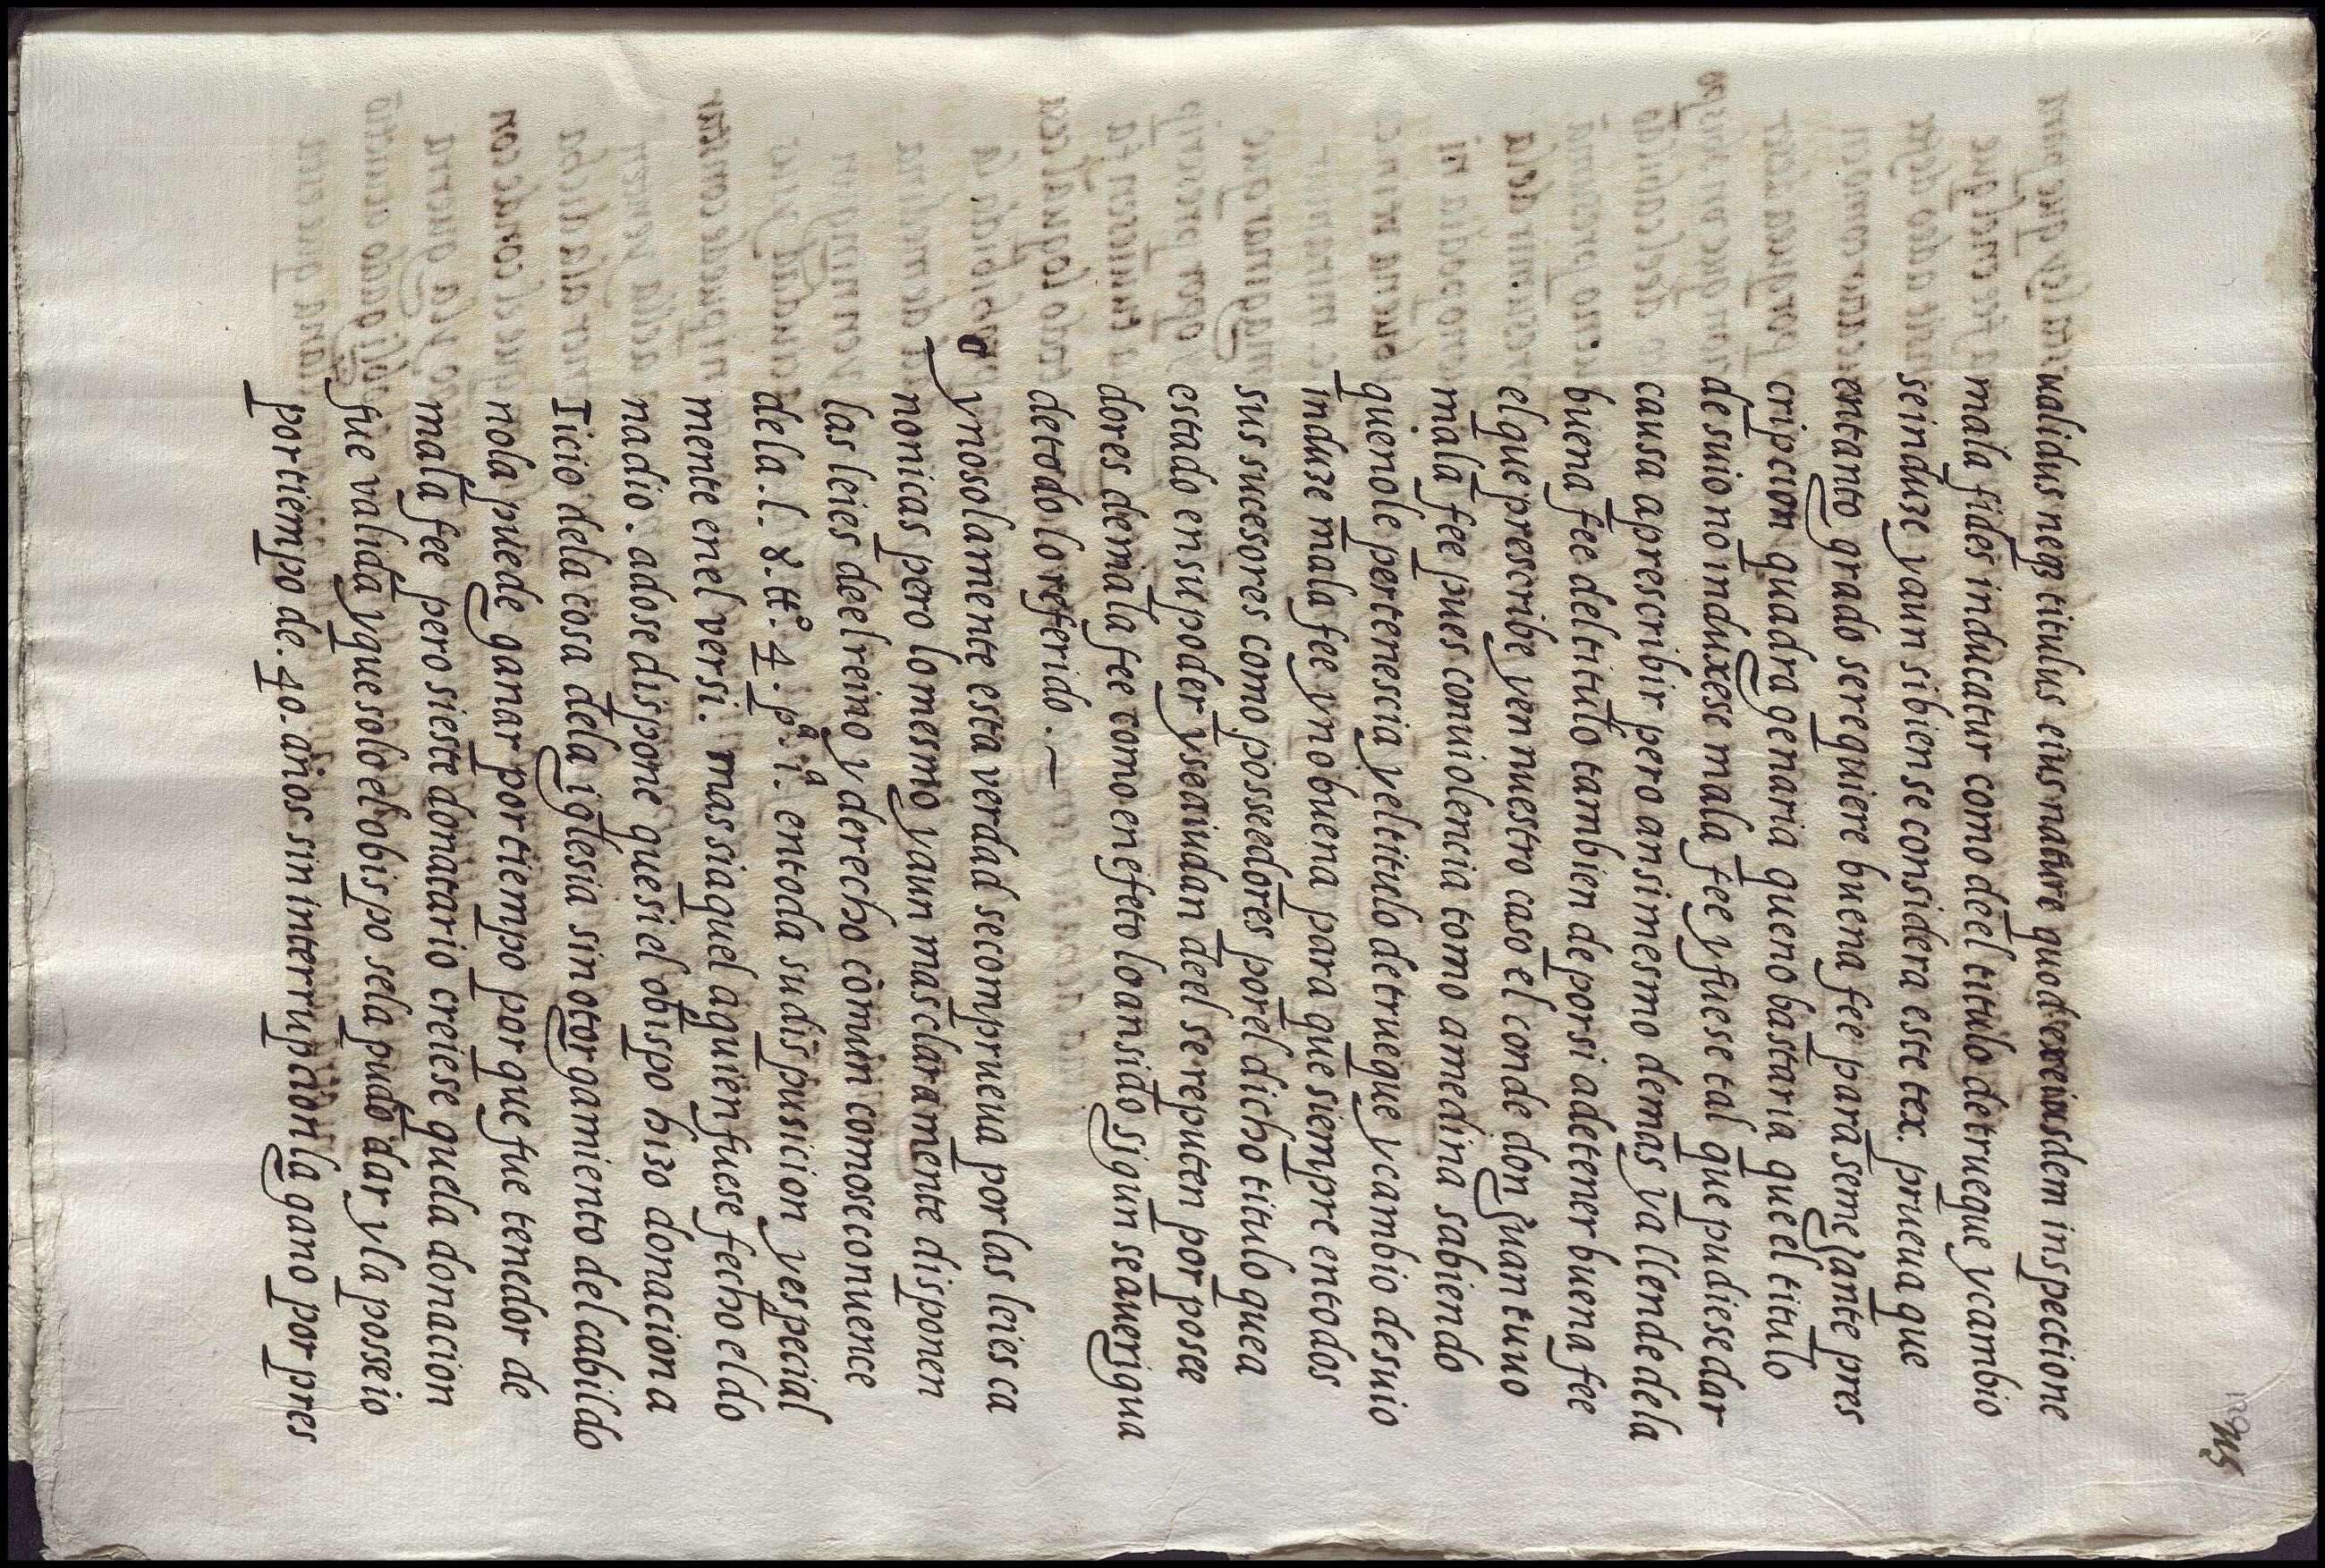 ualidus neqз titulus eius nature quod ex eiusdem inspectione
mala fides inducatur como de el titulo de trueque y cambio
se induze y aun si bien se considera este tex. prueua que
en tanto grado se requiere buena fee para semejante pres
cripcion quadragenaria que no bastaria que el titulo
de suio no induxese mala fee y fuese tal que pudiese dar
causa a prescribir pero ansimesmo demas y allende de la
buena fee del titulo tambien de por si a de tener buena fee
el que prescribe y en nuestro caso el conde don Juan tuuo
mala fee pues con uiolencia tomo a medina sabiendo
que no le pertenescia y el titulo de trueque y cambio de suio
induze mala fee y no buena para que siempre en todos
sus sucesores como posseedores por el dicho titulo que a
estado en su poder y se aiudan de el se reputen por posee
dores de mala fee como en efeto lo an sido sigun se auerigua
de todo lo referido . ~
y no solamente esta verdad se comprueua por las leies ca
nonicas pero lo mesmo y aun mas claramente disponen
las leies de el reino y derecho comun como se conuence
de la . l . 8 . ttº . 4 . pª . 1ª . en toda su dispusicion y especial
mente en el versi . mas si aquel a quien fuese fecho el do
nadio . adose dispone que si el obispo hizo donacion a
Ticio de la cosa de la iglesia sin otorgamiento del cabildo
no la puede ganar por tiempo por que fue tenedor de
mala fee pero si este donatario creiese que la donacion
fue valida y que solo el obispo se la pudo dar y la posseio
por tiempo de . 40 . años sin interrupcion la gano por pres